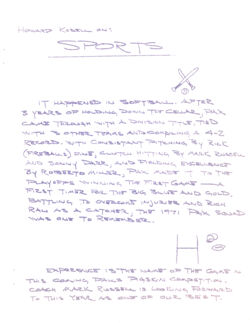 HOWARD KOSELL ON:
SPORTS
IT HAPPENED IN SOFTBALL. AFTER
3 YEARS OF HOLDING DOWN THE CELLAR, PIX
CAME THROUGH WITH A DIVISION TITLE, TIED
WITH 3 OTHER TEAMS AND COMPILING A 4-2
RECORD. WITH CONSISTANT PITCHING BY RICK
(FIREBALL) CUNE, CLUTCH HITTING BY MARK RUSSELL
AND SONNY DARR, AND FIELDING EXCELLENCE
BY ROBERTO MINER, PIX MADE IT TO THE
PLAYOFFS WINNING THE FIRST GAME — A
FIRST TIMER FOR THE BIG BLUE AND GOLD.
BATTLING TO OVERCOME INJURIES AND RICH
RAU AS A CATCHER, THE 1971 PIX SQUAD
WAS ONE TO REMEMBER.
EXPERIENCE IS THE NAME OF THE GAME IN
THIS COMING FALL'S PIGSKIN COMPETITION.
COACH MARK RUSSELL IS LOOKING FORWARD
TO THIS YEAR AS ONE OF OUR BEST.